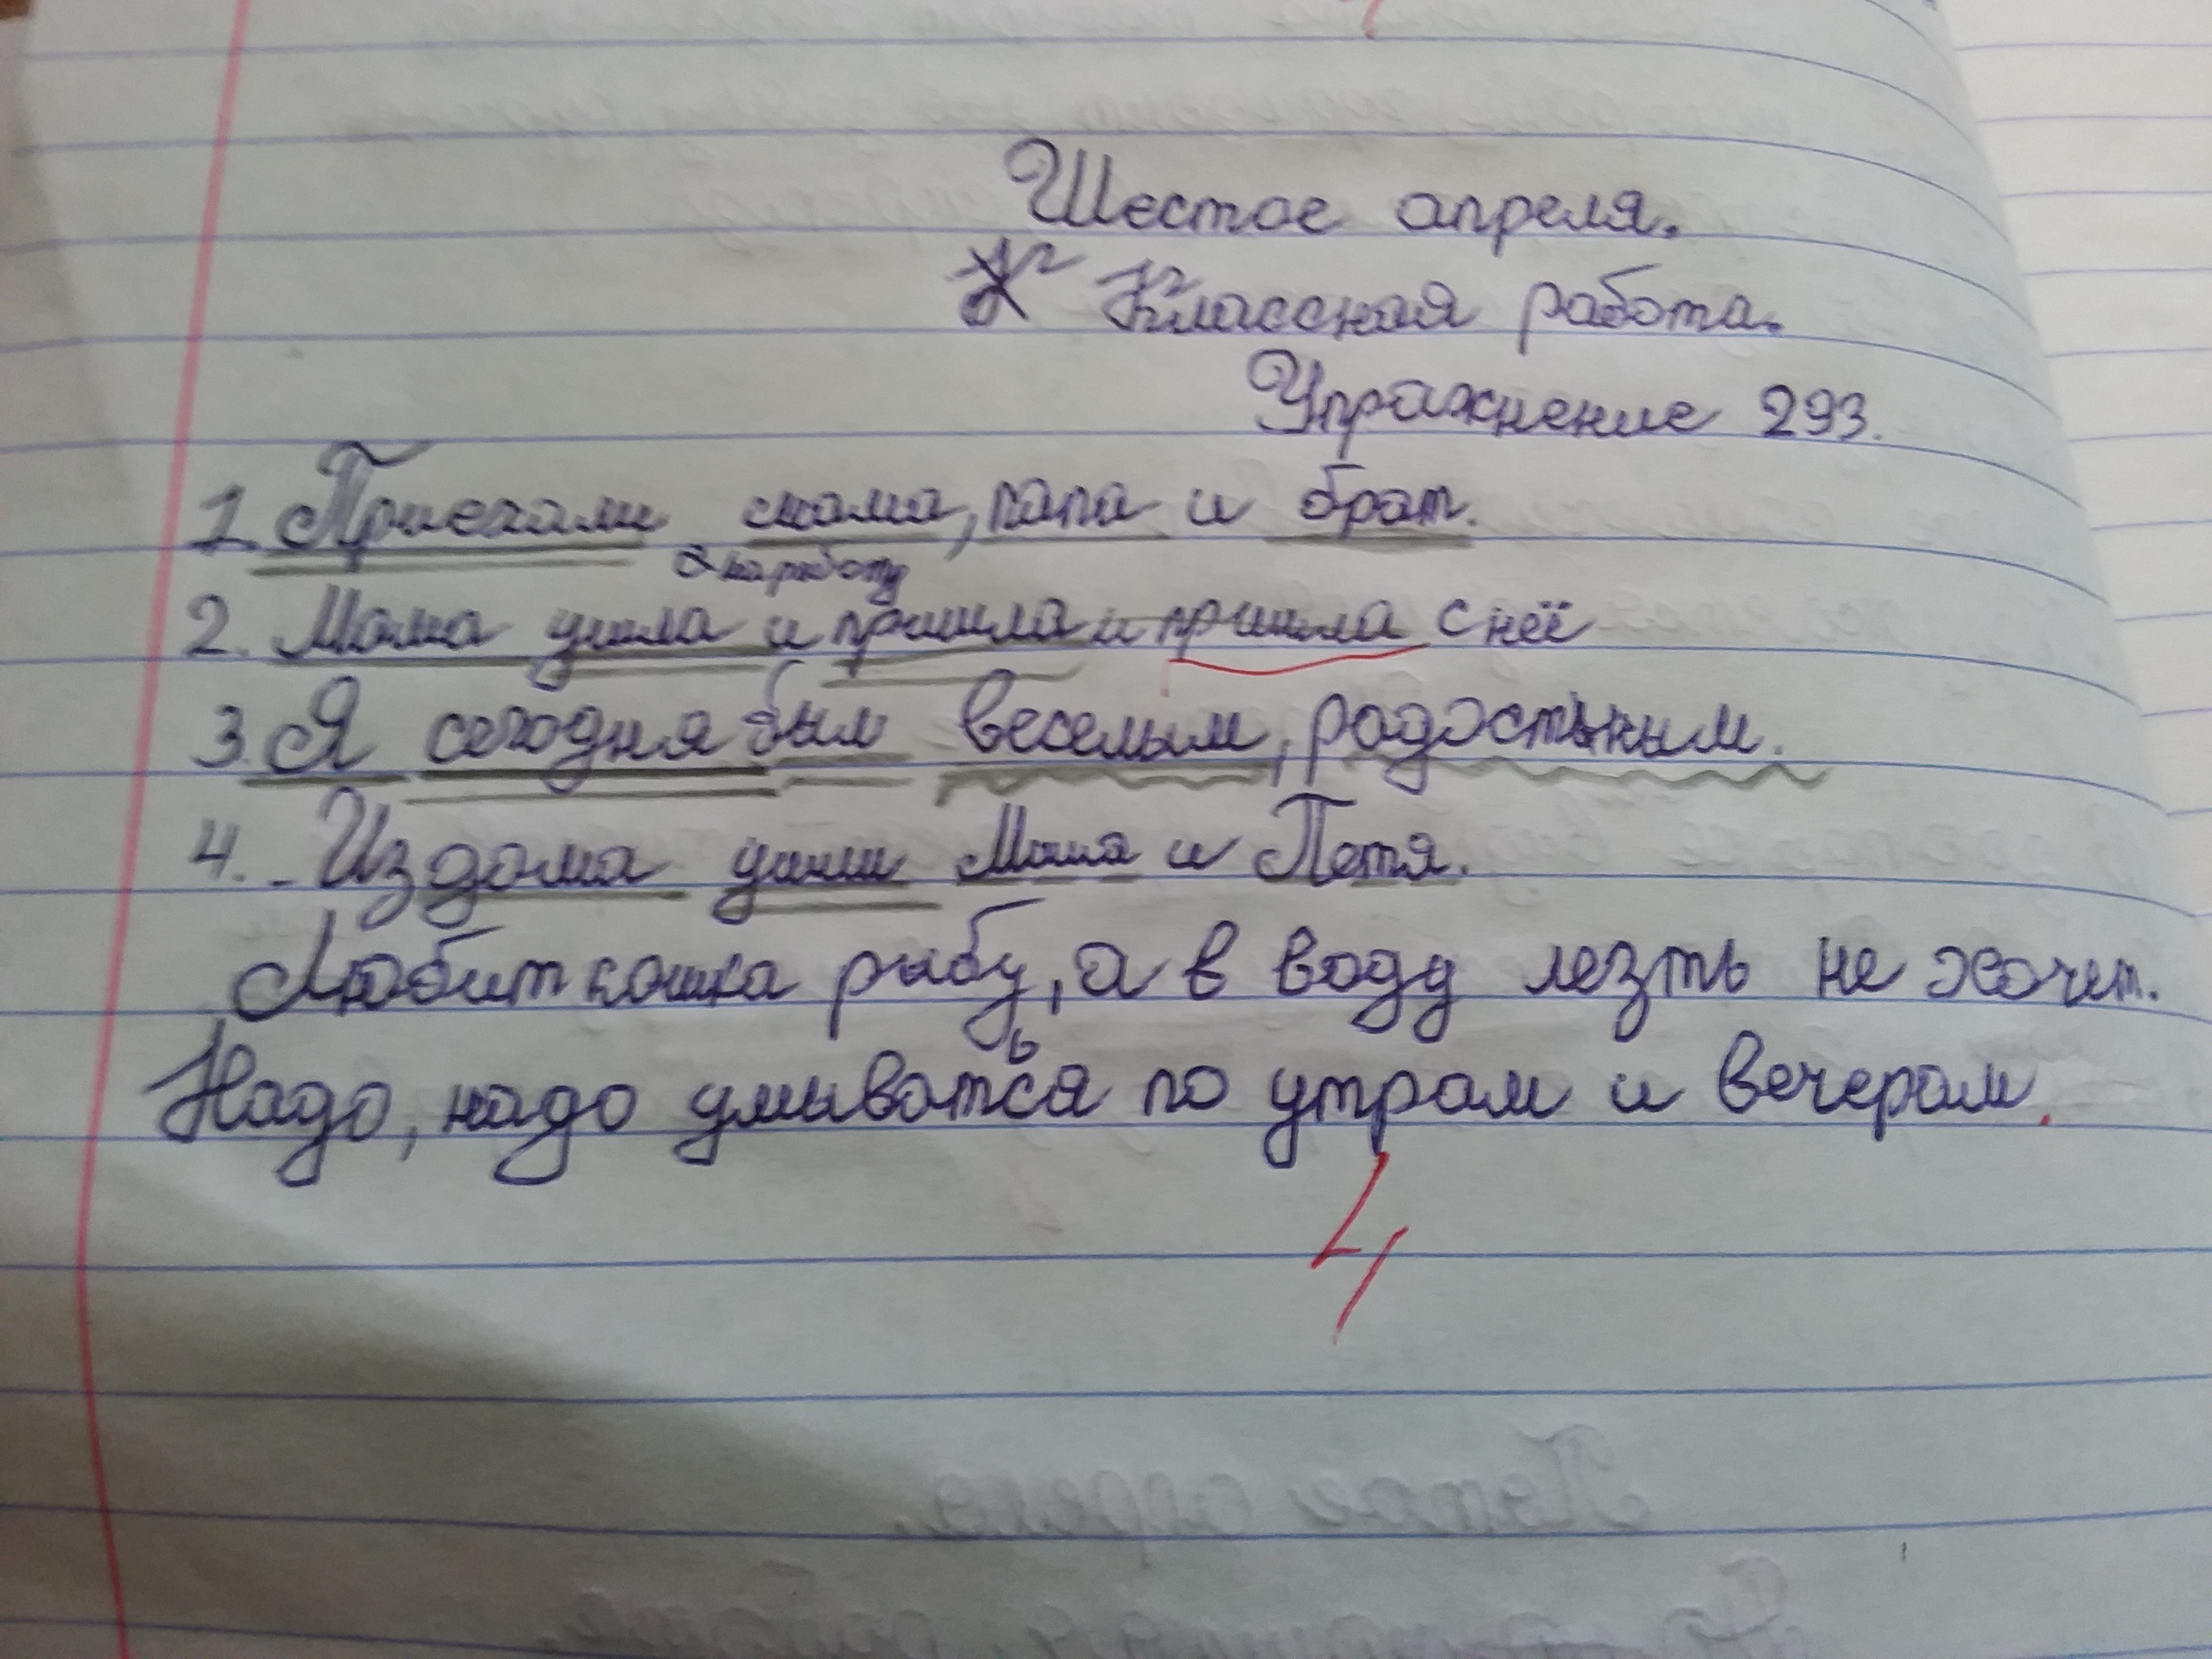 Шестое апреля.
Классная работа.
Упражнение 293.
1. Приехали мама, папа и брат.
на работу
2. Мама ушла и пришла и пришла с неё
3. Я сегодня был веселым, радостным.
4. Из дома ушли Маша и Петя.
Любит кошка рыбу, а в воду лезть не хочет.
Надо, надо умываться по утрам и вечерам.
4